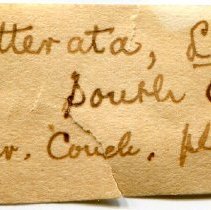 tterata, L
South
w. Couch. pl